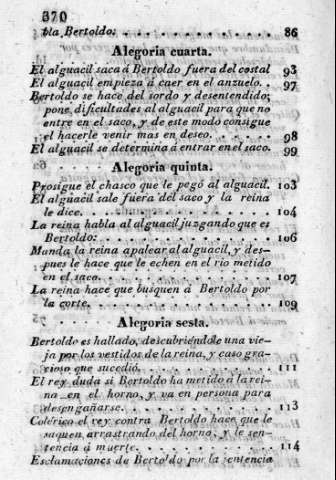 370
bla Bertoldo. . . . . . . . . . . . 86
Alegoria cuarta.
El alguacil saca á Bertoldo fuera del costal 93
El alguacil empieza á caer en el anzuelo. . 97
Bertoldo se hace del sordo y desentendido;
pone dificultades al alguacil para que no
entre en el saco, y de este modo consigue
el hacerle venir mas en deseo. . . . . . 98
El alguacil se determina á entrar en el saco. 99
Alegoria quinta.
Prosigue el chasco que le pegó al alguacil. 103
El alguacil sale fuera del saco y la reina
le dice. . . . . . . . . . . . . 104
La reina habla al alguacil juzgando que es
Bertoldo. . . . . . . . . . . . 106
Manda la reina apalear al alguacil, y des-
pues le hace que le echen en el rio metido
en el saco. . . . . . . . . . . . 107
La reina hace que busquen á Bertoldo por
la corte. . . . . . . . . . . . . 109
Alegoria sesta.
Bertoldo es hallado, descubriéndole una vie-
ja por los vestidos de la reina, y caso gra-
cioso que sucedió. . . . . . . . . . 111
El rey duda si Bertoldo ha metido á la rei-
na en el horno, y va en persona para
desengañarse. . . . . . . . . . . . 113
Colérico el rey contra Bertoldo hace que le
saquen arrastrando del horno, y le sen-
tencia á muerte. . . . . . . . . . 114
Esclamaciones de Bertoldo por la sentencia